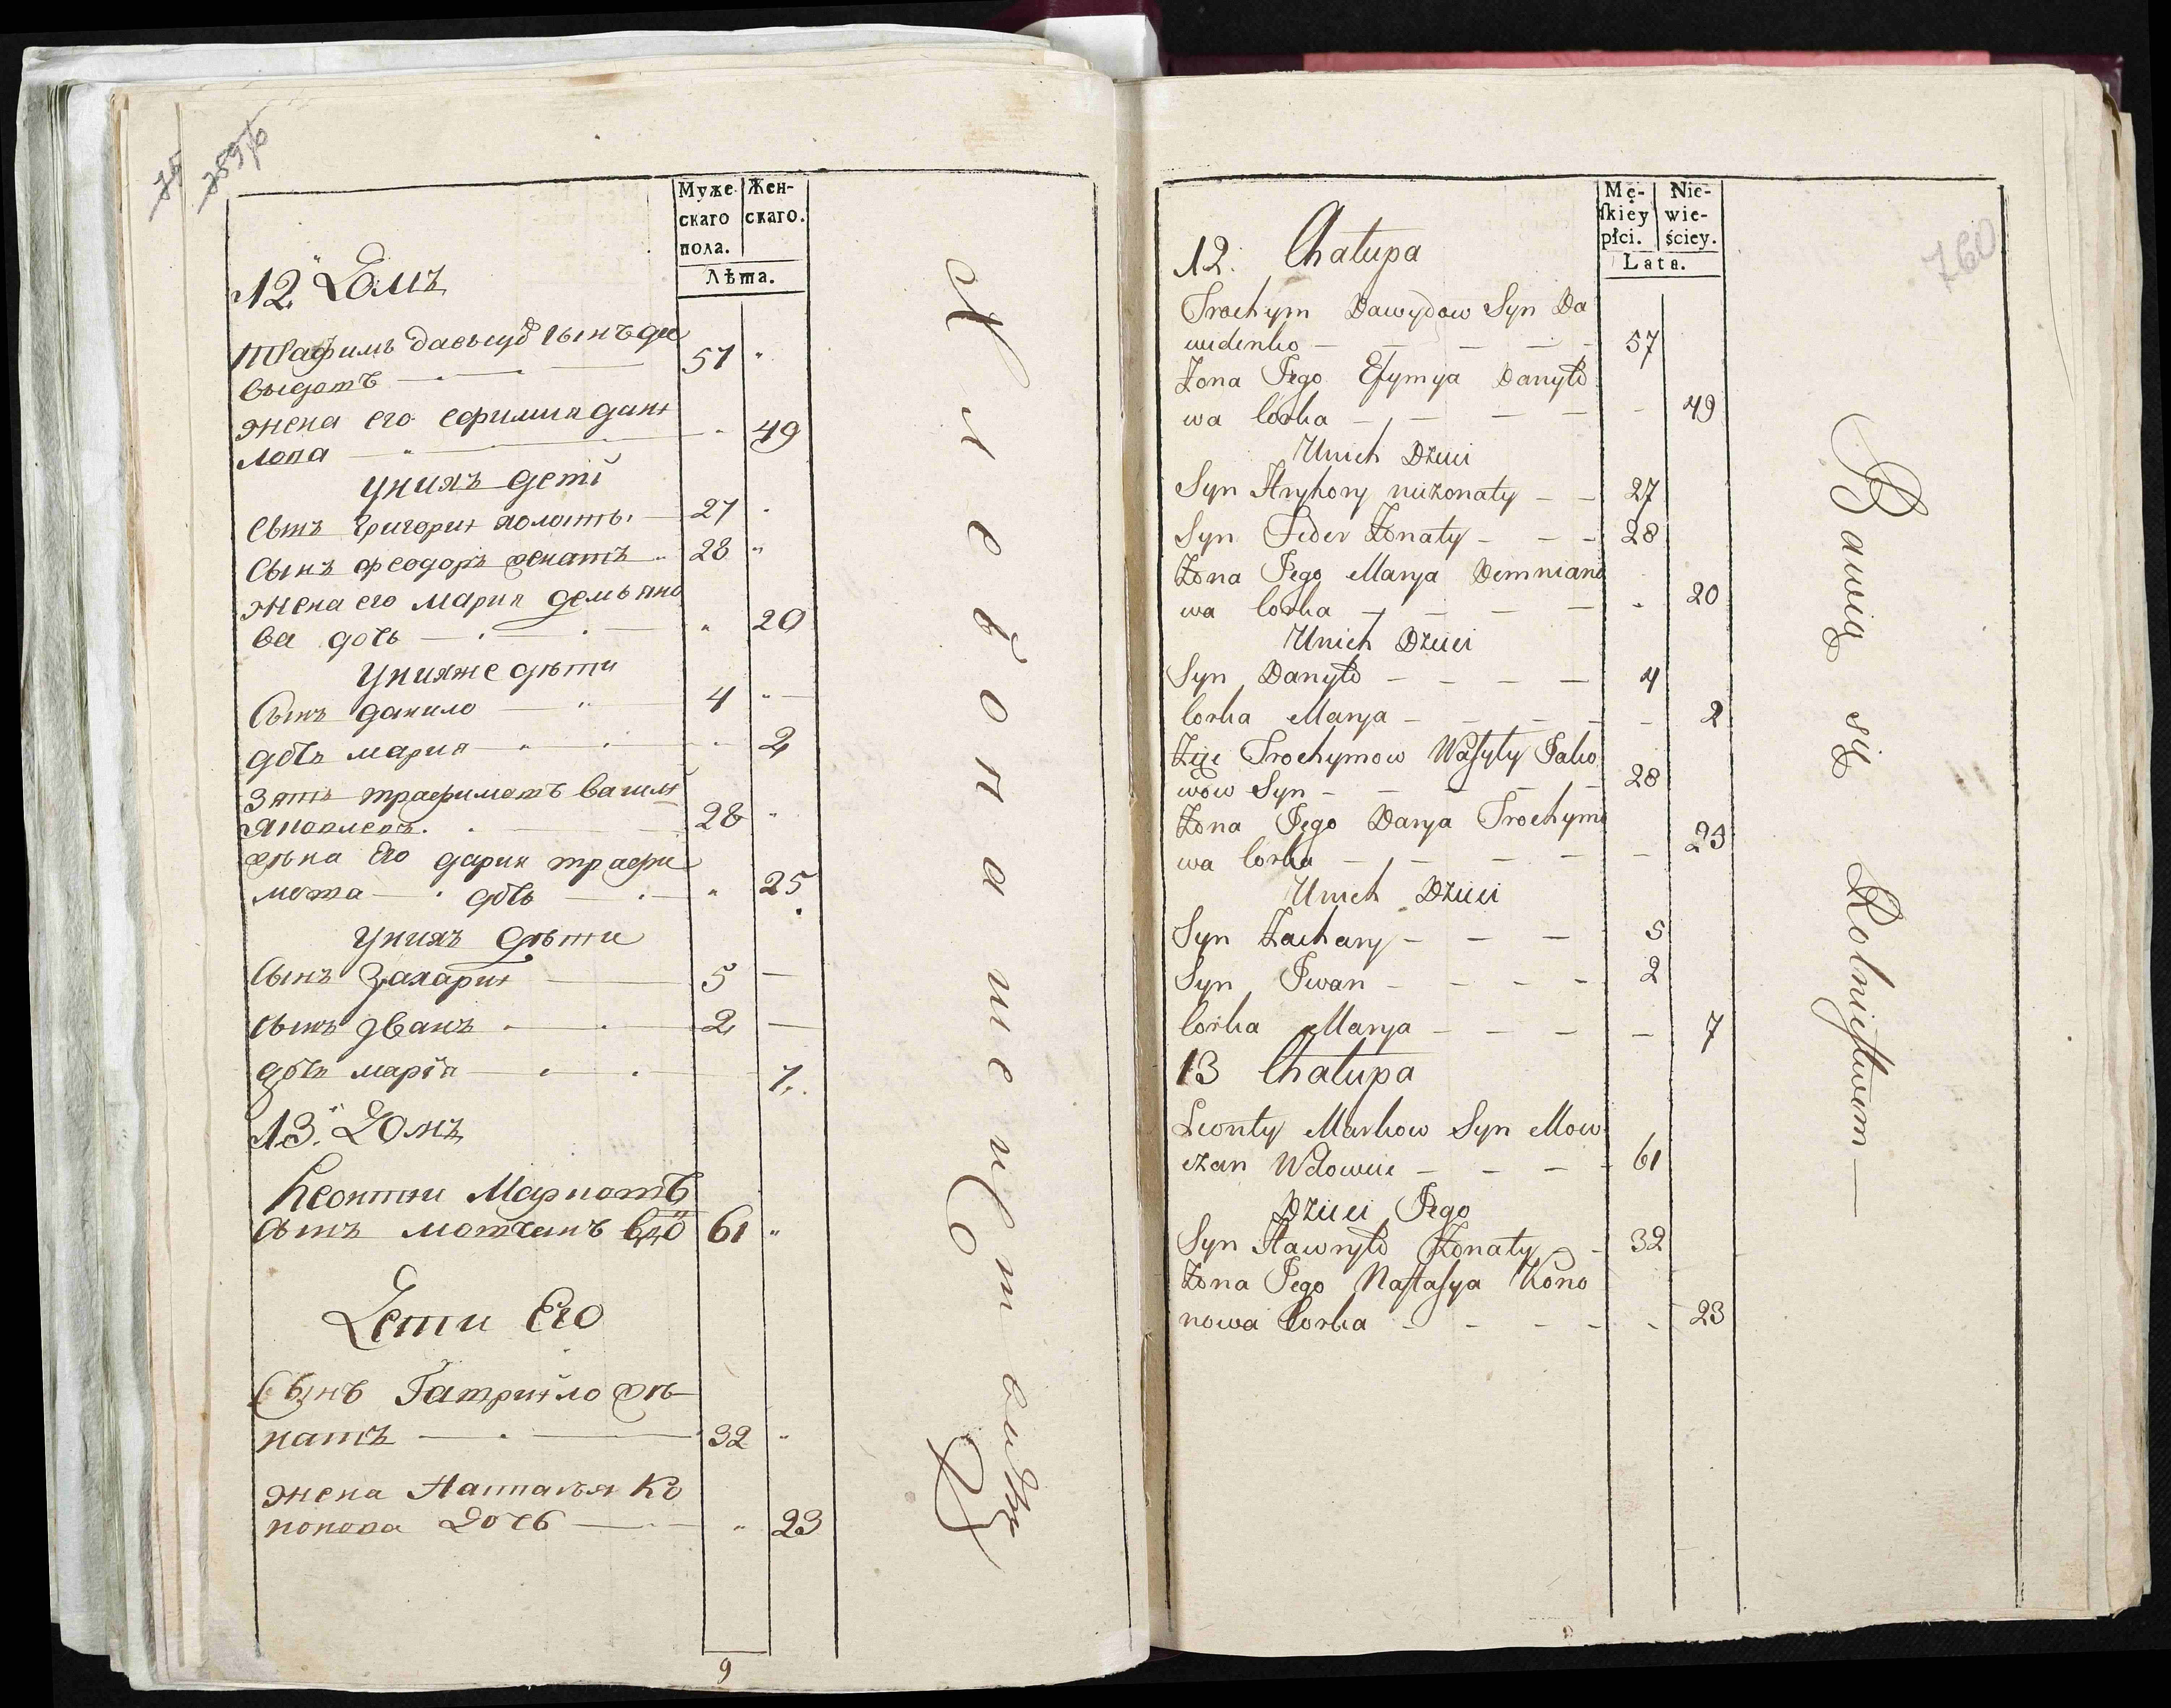 759 об
Муже-
скаго
пола.
Жен-
скаго.
Лѣта.
12. Домъ
Трафимъ давыдо сынъ да
выдотъ
57
жена его ефимия дани
лова
49
У нихъ дети
Сынъ григори холостъ
27
Сынъ феодоръ женатъ
28
жена его Мария демьяно
ва дочь
20
У нихже дѣти
Сынъ данило
4
дочь мария
2
Зять трафимовъ васили
Яковлевъ
28
жѣна Его дария трафи
мова дочь
25
У нихъ дѣти
Сынъ Захарии
5
сынъ Иванъ
2
дочь марія
7
13. Домъ
Леонтии Марковъ
Сынъ мовчанъ вдо
61
Дети Его
Сынъ Гаврийло жѣ
натъ
32
жена Настасъя Ко
нонова Дочь
23
9
760
Mę-
ſkiey
płci.
Nie-
wie-
ściey.
Lata.
12. Chałupa
Trochym Dawydow Syn Da
widenko
57
Żona Jego Efymya Danyło
wa Corka
49
U nich Dzieci
Syn Hryhory nieżonaty
27
Syn Feder Żonaty
28
Żona Jego Marya Demniano
wa Corka
20
U nich Dzieci
Syn Danyło
4
Corka Marya
2
Zięć Trochymow Wasyly Jako
wow Syn
28
Żona Jego Darya Trochymo
wa Corka
25
U nich Dzieci
Syn Zachary
5
Syn Iwan
2
Corka Marya
7
13 Chałupa
Leonty Markow Syn Mow
czan Wdowiec
61
Dzieci Jego
Syn Hawryło Żonaty
32
Żona Jego Nastasya Kono
nowa Corka
23
Bawią się Rolnictwem